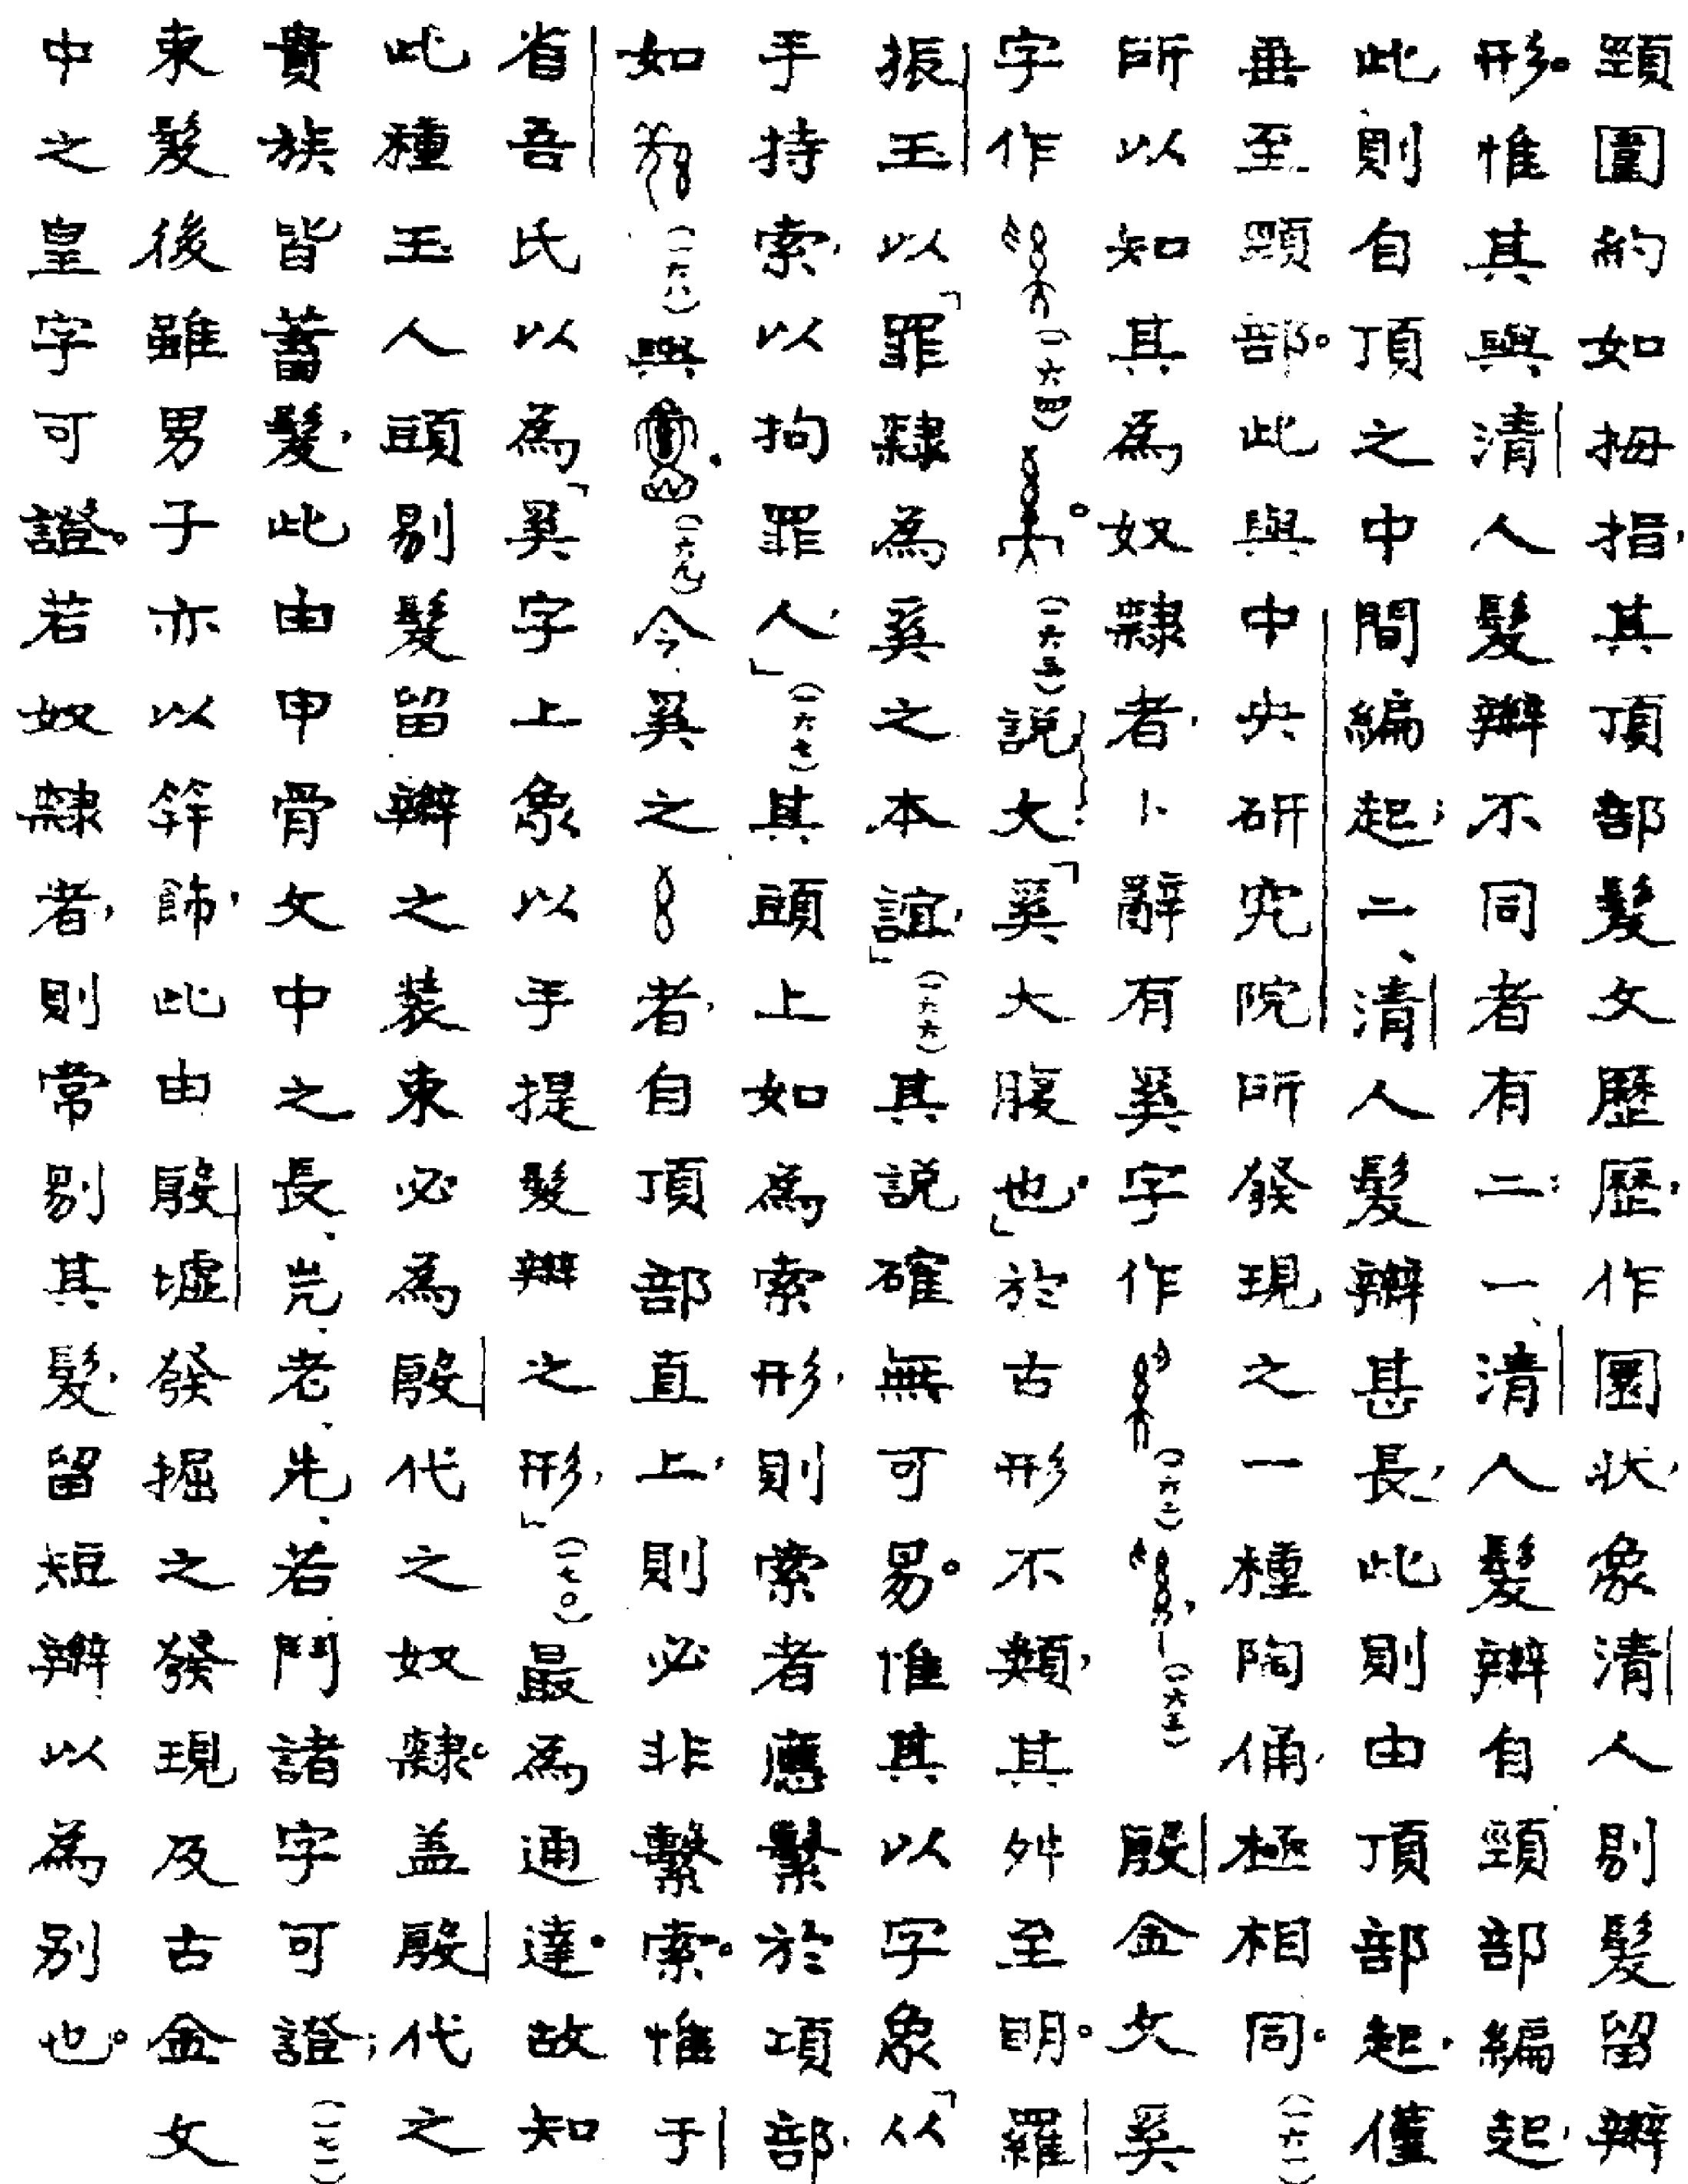 頸圍約如拇指，其頂部髮文歷歷，作圜狀，象清人剔髮留辮
形。惟其與清人髮辮不同者有二：一、清人髮辮自頸部編起，
此則自頂之中間編起；二、清人髮辮甚長，此則由頂部起，僅
垂至頸部。此與中央研究院所發現之一種陶俑，極相同。（一六一）
所以知其為奴隸者，卜辭有奚字作（一六二），（一六三）殷金文奚
字作（一六四）。（一六五）說文「奚大腹也。」於古形不類，其舛至明。羅
振玉以「罪隸為奚之本誼，」（一六六）其說確無可易。惟其以字象「从
手持索，以拘罪人，」（一六七）其頭上如為索形，則索者應繫於項部，
如（一六八）與。（一六九）今奚之者，自頂部直上，則必非繫索。惟于
省吾氏以為「奚字上象以手提髮辮之形，」（一七〇）最為通達。故知
此種玉人頭剔髮留辮之裝束必為殷代之奴隸。蓋殷代之
貴族皆蓄髮，此由甲骨文中之長、岂、老、先、若、鬥諸字可證；（一七一）
束髮後雖男子亦以笄飾，此由殷墟發掘之發現及古金文
中之皇字可證。若奴隸者，則常剔其髮，留短辮以為別也。